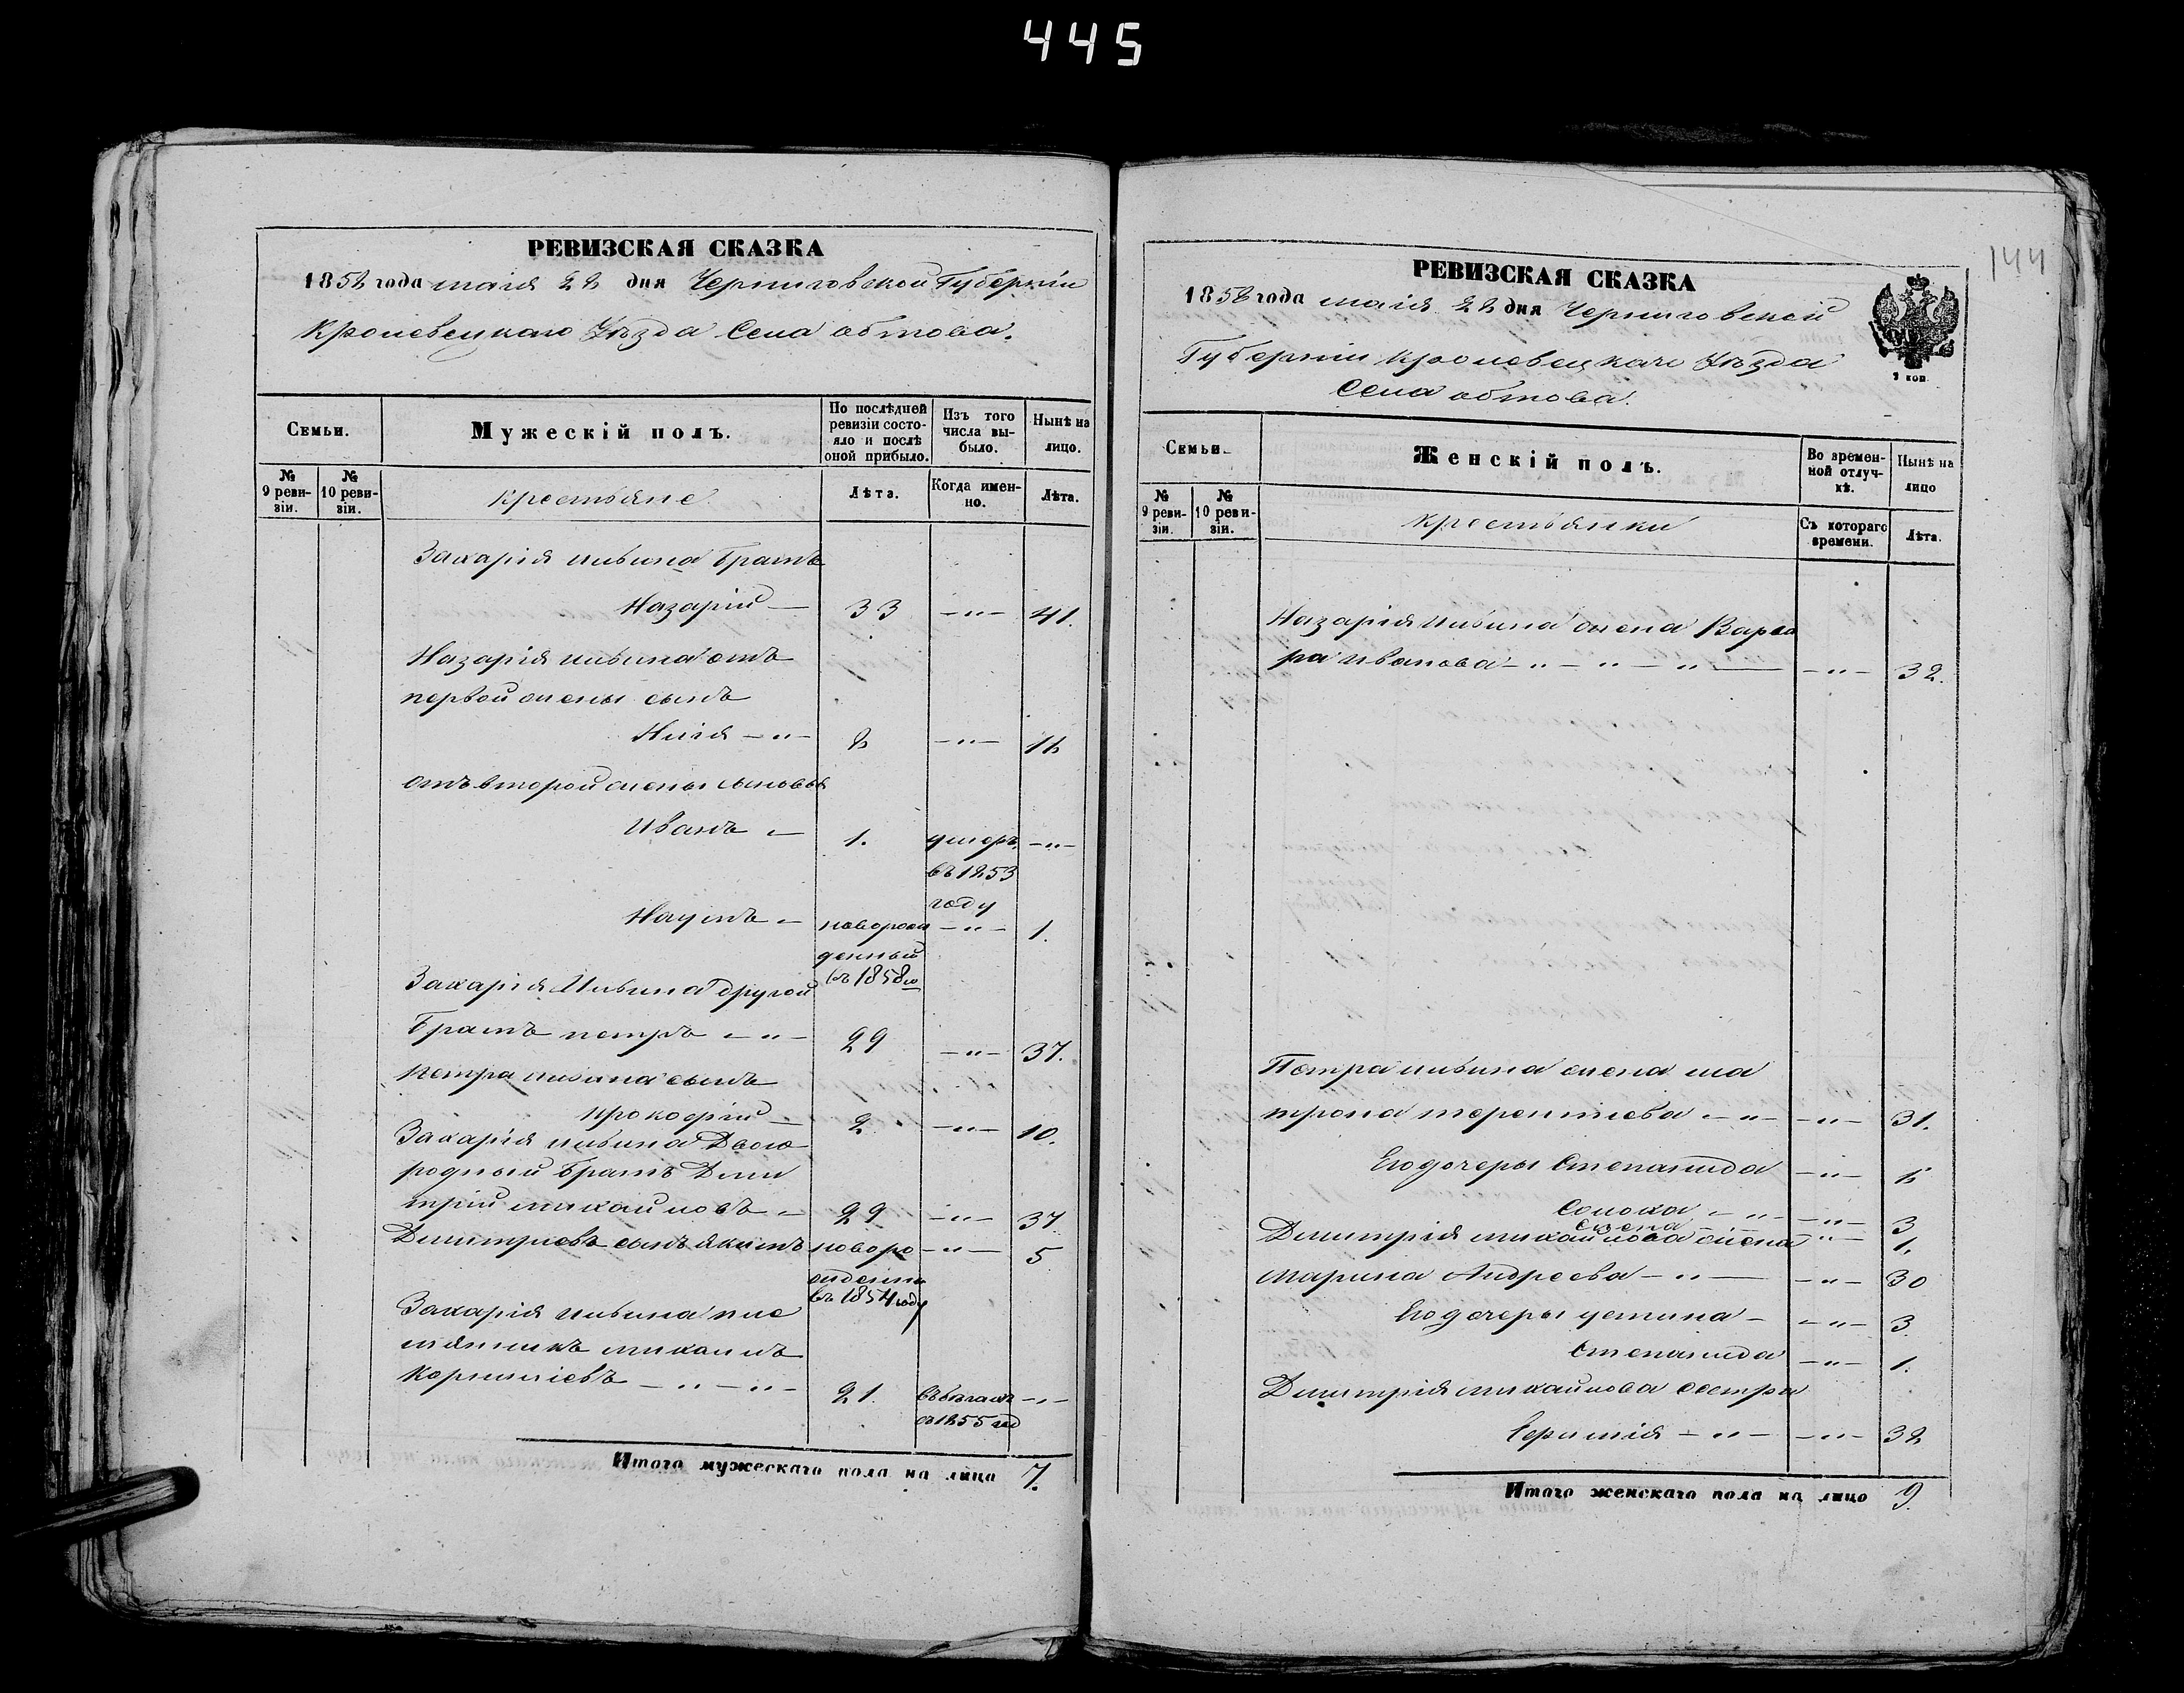 445
РЕВИЗСКАЯ СКАЗКА
1858 года маія 28 дня Черниговской Губерніи
Кролевецкаго Уѣзда Села обтова.
Семьи.
Мужескій полъ.
По послѣдней ревизіи состояло и послѣ оной прибыло.
Изъ того числа выбыло.
Нынѣ на лицо.
№ 9 ревизіи.
№ 10 ревизіи.
крестьяне
Лѣта.
Когда именно.
Лѣта.
Захарія ильина братъ
Назарій — 33 — 41.
Назарія ильина отъ
первой жены сынъ
Илія 8 — 16
отъ второй жены сыновья
Иванъ 1. умеръ
въ 1853
году
Наумъ новорож 1.
денный
въ 1858 го
Захарія Ильина другой
братъ петръ 29 — 37.
петра ильина сынъ
прокофій 2 — 10.
Захарія ильина Двою
родный братъ Дми
трій михайловъ 29 — 37
Дмитріевъ сынъ якимъ новоро 5
жденны
въ 1854 году
Захарія ильина пле
мянникъ михаилъ
Корниліевъ 21. въ бѣгахъ
съ 1855 год
Итого мужескаго пола на лицо 7.
144
РЕВИЗСКАЯ СКАЗКА
1858 года маія 28 дня Черниговской
Губерніи кролевецкаго Уѣзда
Села обтова.
1 коп.
Семьи.
Женскій полъ.
Во временной отлучкѣ.
Нынѣ на лицо
№ 9 ревизіи.
№ 10 ревизіи.
крестьянки
Съ котораго времени.
Лѣта.
Назарія ильина жена Варва
ра иванова 32.
Петра ильина жена ма
трона терентіева 31.
Его дочеры Степанида 6
Солоха 3
1.
Дмитрія михайлова жена
марина Андреева 30
Его дочеры устина 3
Степанида 1.
Дмитрія михайлова сестра
32
Итого женскаго пола на лицо 9.